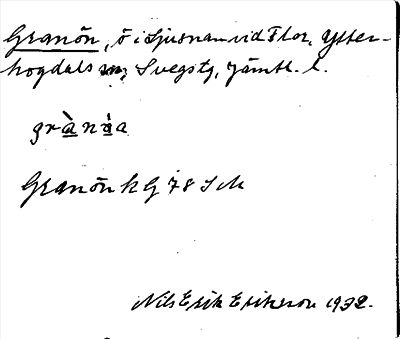 Granön, ö i Ljusnan vid Flor, Ytter-
hogdals sn, Svegs tg, Jämtl. l.
grànö̀a
Granön k G 78 S M
Nils Erik Erikson 1932.